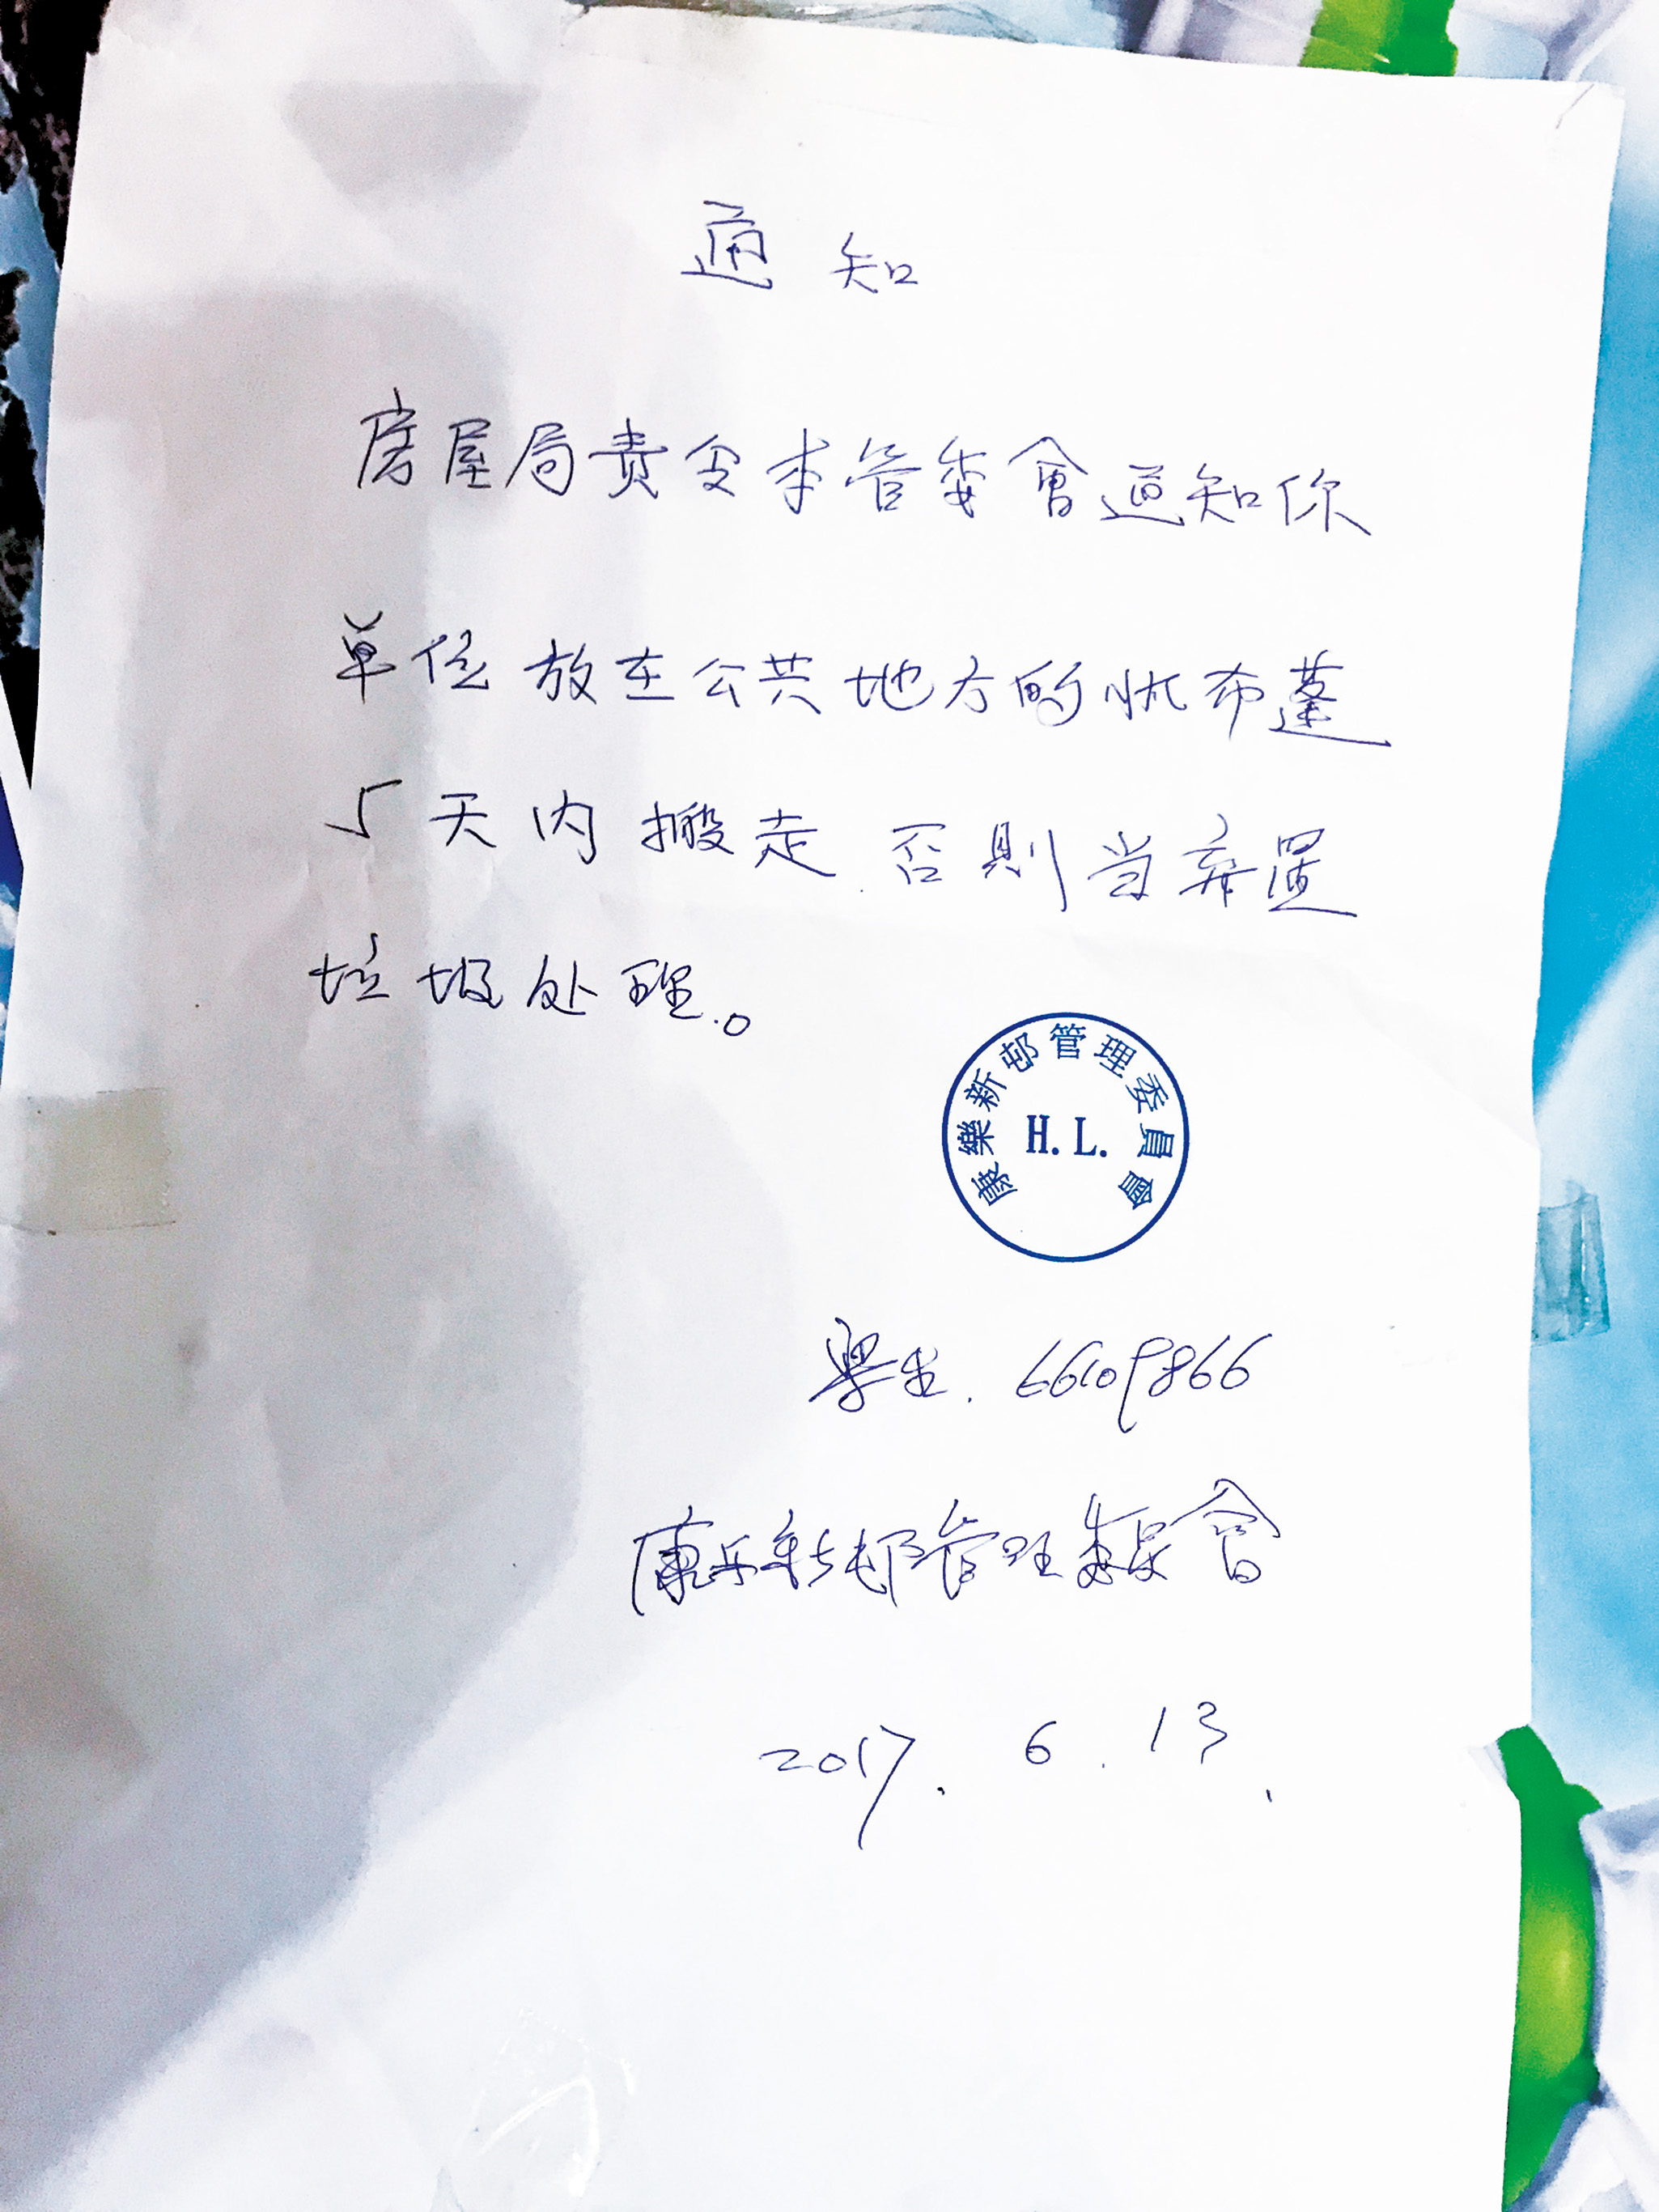 通知
房屋局责令本管委會通知你
单位放在公共地方的帆布蓬
5天内搬走 否則当弃置
垃圾处理。
康樂新邨管理委員會
H.L.
生. 66109866
康乐新邨管理委員會
2017. 6. 13.